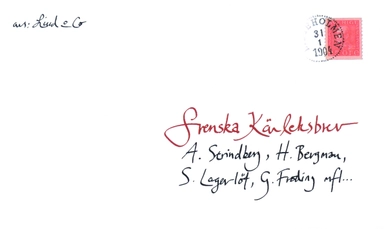 av: Lind & Co
HOLMEN
31
1
1904
Svenska Kärleksbrev
A. Strindberg, H. Bergman,
S. Lagerlöf, G. Fröding mfl...